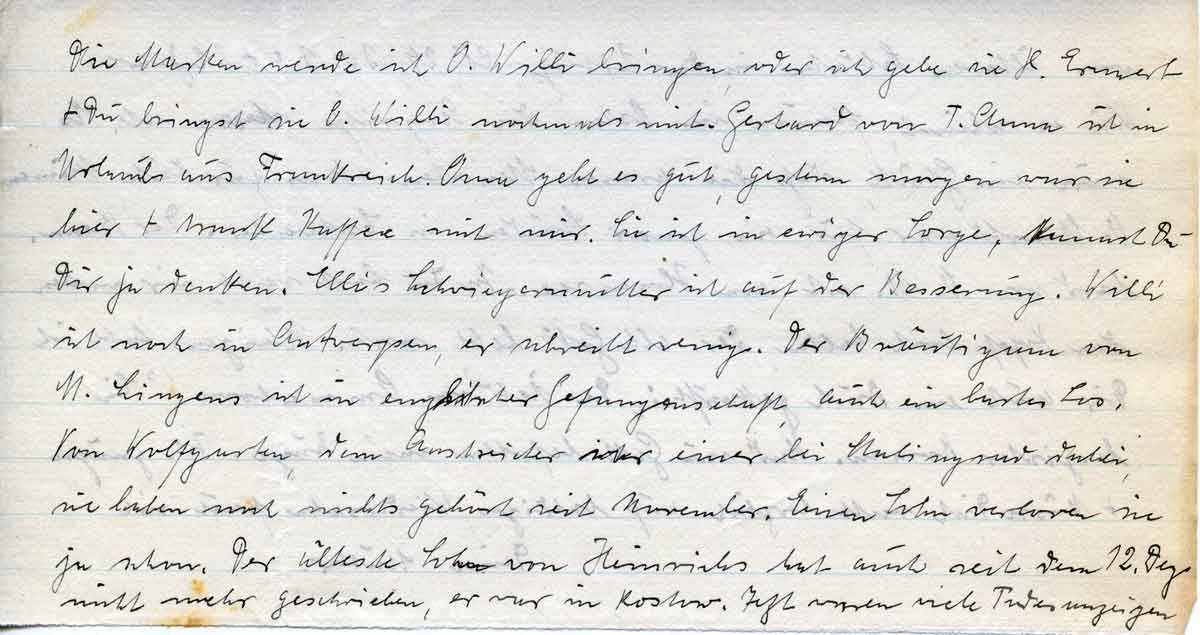 Die Marken werde ich O. Willi bringen, oder ich gebe sie H. Ermert
+ Du bringst sie O. Willi nochmals mit. Gerhard von T. Anna ist in
Urlaub aus Frankreich. Oma geht es gut, gestern morgen war sie
hier + trank Kaffee mit mir. Sie ist in ewiger Sorge, kannst Du
Dir ja denken. Elli's Schwiegermutter ist auf der Besserung. Willi
ist noch in Antwerpen, er schreibt wenig. Der Bräutigam von
M. Lingens ist in englischer Gefangenschaft, auch ein hartes Los.
Von Wolfgarten, dem Anstreicher war einer bei Stalingrad dabei,
sie haben noch nichts gehört seit November. Einen Sohn verloren sie
ja schon. Der älteste Sohn von Heinrichs hat auch seit dem 12. Dez.
nicht mehr geschrieben, er war in Rostow. Jetzt waren viele Todesanzeigen